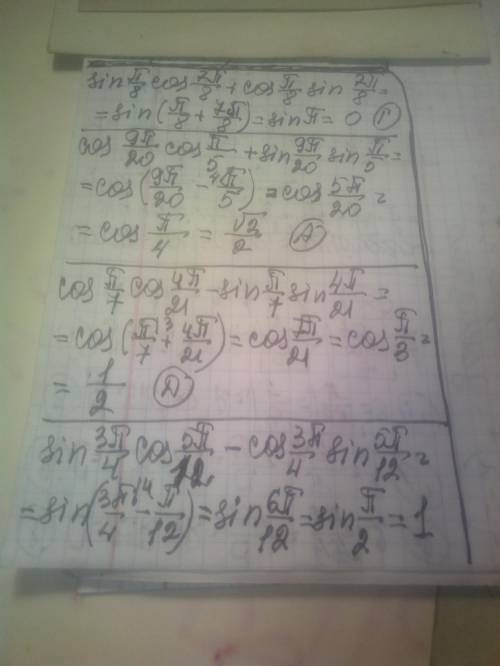 sin π/8 cos 7π/8 + cos π/8 sin 7π/8 =
= sin(π/8 + 7π/8) = sin π = 0 Г
cos 9π/20 cos π/5 + sin 9π/20 sin π/5 =
= cos(9π/20 - 4π/5) = cos 5π/20 =
= cos π/4 = √2/2 А
cos π/7 cos 4π/21 - sin π/7 sin 4π/21 =
= cos(π/7 3 + 4π/21) = cos 7π/21 = cos π/3 =
= 1/2 Д
sin 3π/4 cos 5π/12 - cos 3π/4 sin 5π/12 =
= sin(3π/4 - π/12) = sin 6π/12 = sin π/2 = 1